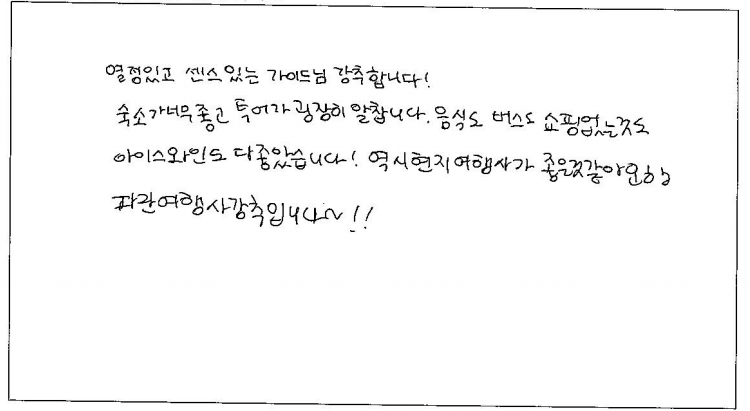 열정있고 센스있는 가이드님 강추합니다!
숙소가너무좋고 투어가 굉장히 알찹니다. 음식도 버스도 쇼핑없는것도
아이스와인도 다좋았습니다! 역시현지여행사가 좋은것같아요ㅎㅎ
파란여행사강추입니다~!!